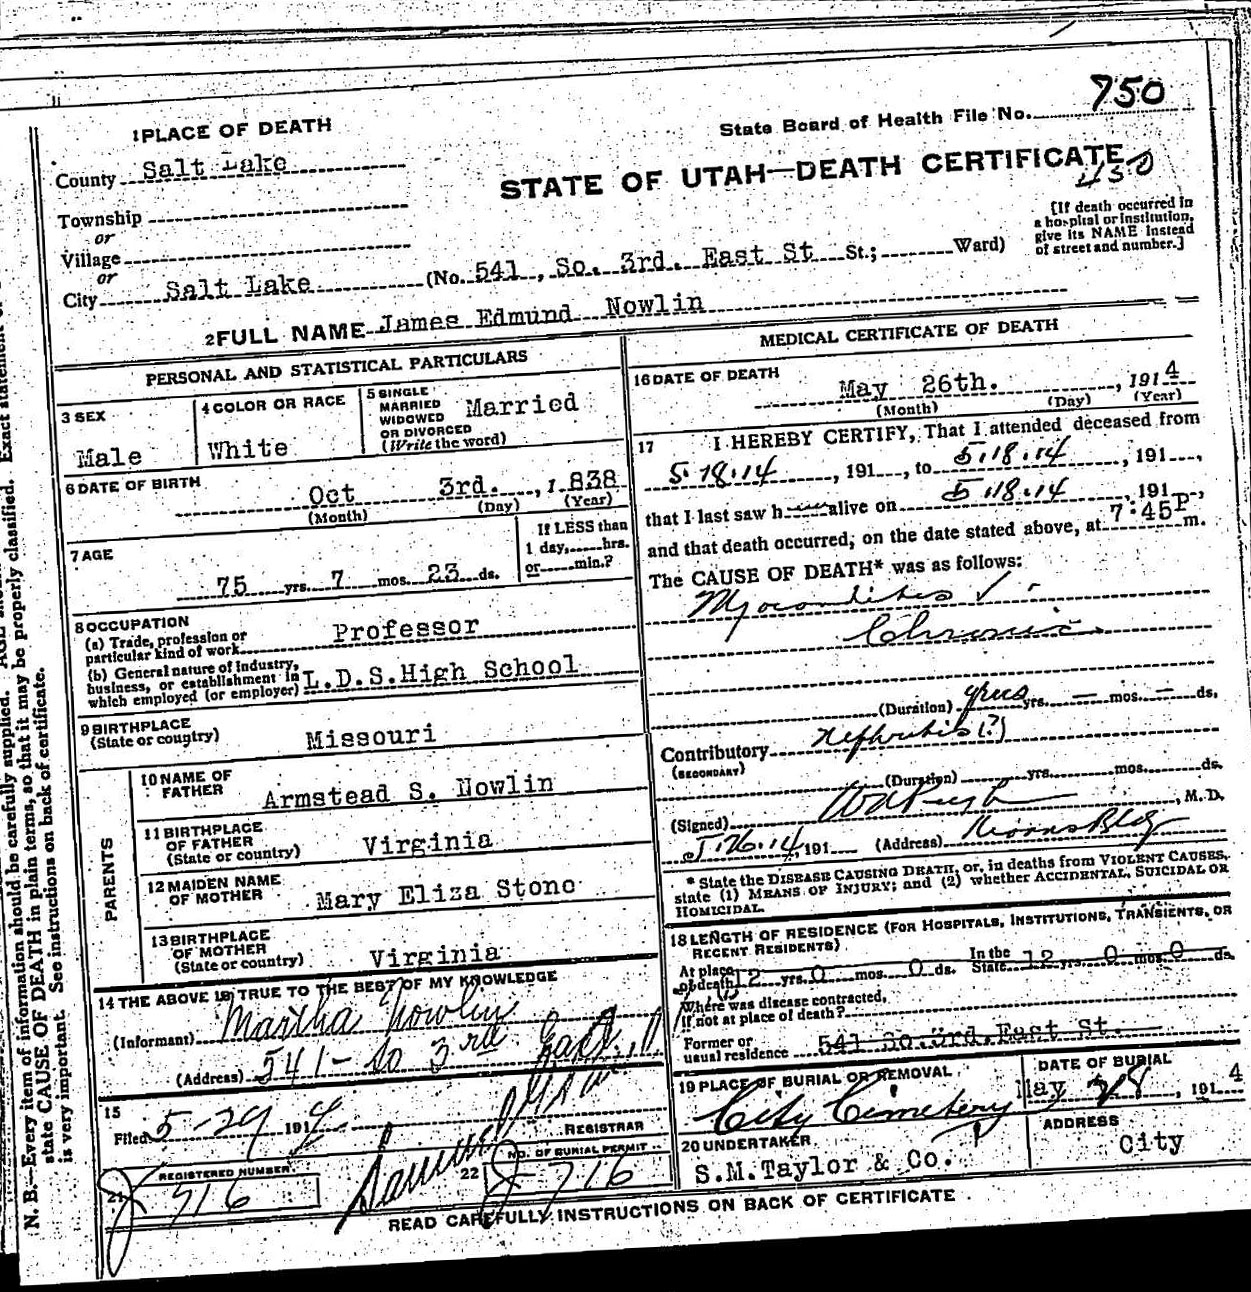 750
State Board of Health File No.
1 PLACE OF DEATH
County Salt Lake
STATE OF UTAH—DEATH CERTIFICATE
450
Township
or
Village
or
City Salt Lake (No. 541, So. 3rd. East St St.; Ward)
[If death occurred in
a hospital or institution,
give its NAME instead
of street and number.]
2 FULL NAME James Edmund Nowlin
PERSONAL AND STATISTICAL PARTICULARS
3 SEX
Male
4 COLOR OR RACE
White
5 SINGLE
MARRIED
WIDOWED
OR DIVORCED
(Write the word)
Married
6 DATE OF BIRTH
Oct 3rd. , 1838
(Month) (Day) (Year)
7 AGE
75 yrs. 7 mos. 23 ds.
If LESS than
1 day, hrs.
or min.?
8 OCCUPATION
(a) Trade, profession or
particular kind of work Professor
(b) General nature of industry,
business, or establishment in
which employed (or employer) L.D.S. High School
9 BIRTHPLACE
(State or country) Missouri
PARENTS
10 NAME OF
FATHER Armstead S. Nowlin
11 BIRTHPLACE
OF FATHER
(State or country) Virginia
12 MAIDEN NAME
OF MOTHER Mary Eliza Stone
13 BIRTHPLACE
OF MOTHER
(State or country) Virginia
14 THE ABOVE IS TRUE TO THE BEST OF MY KNOWLEDGE
(Informant) Martha Nowlin
(Address) 541 - So 3rd East
15
Filed 5-29 1914
Samuel
REGISTRAR
21 REGISTERED NUMBER
J 716
22 NO. OF BURIAL PERMIT
J 716
MEDICAL CERTIFICATE OF DEATH
16 DATE OF DEATH
May 26th. , 1914
(Month) (Day) (Year)
17 I HEREBY CERTIFY, That I attended deceased from
5.18.14, 191 , to 5.18.14, 191 ,
that I last saw h alive on 5.18.14, 191 ,
and that death occurred, on the date stated above, at 7:45 P m.
The CAUSE OF DEATH* was as follows:
Myocarditis ✓
Chronic
(Duration) yrs. — mos. — ds.
Contributory Nephritis (?)
(SECONDARY)
(Duration) yrs. mos. ds.
(Signed) , M.D.
5.26.14, 191 (Address) Kearns Bldg
* State the DISEASE CAUSING DEATH, or, in deaths from VIOLENT CAUSES,
state (1) MEANS OF INJURY; and (2) whether ACCIDENTAL, SUICIDAL OR
HOMICIDAL.
18 LENGTH OF RESIDENCE (FOR HOSPITALS, INSTITUTIONS, TRANSIENTS, OR
RECENT RESIDENTS)
At place
of death 12 yrs. 0 mos. 0 ds. In the State 12 yrs. 0 mos. 0 ds.
Where was disease contracted,
if not at place of death?
Former or
usual residence 541 So. 3rd. East St.
19 PLACE OF BURIAL OR REMOVAL
City Cemetery
DATE OF BURIAL
May 28, 1914
20 UNDERTAKER
S.M. Taylor & Co.
ADDRESS
City
READ CAREFULLY INSTRUCTIONS ON BACK OF CERTIFICATE
N. B.—Every item of information should be carefully supplied. Exact statement
state CAUSE OF DEATH in plain terms, so that it may be properly classified.
is very important. See instructions on back of certificate.